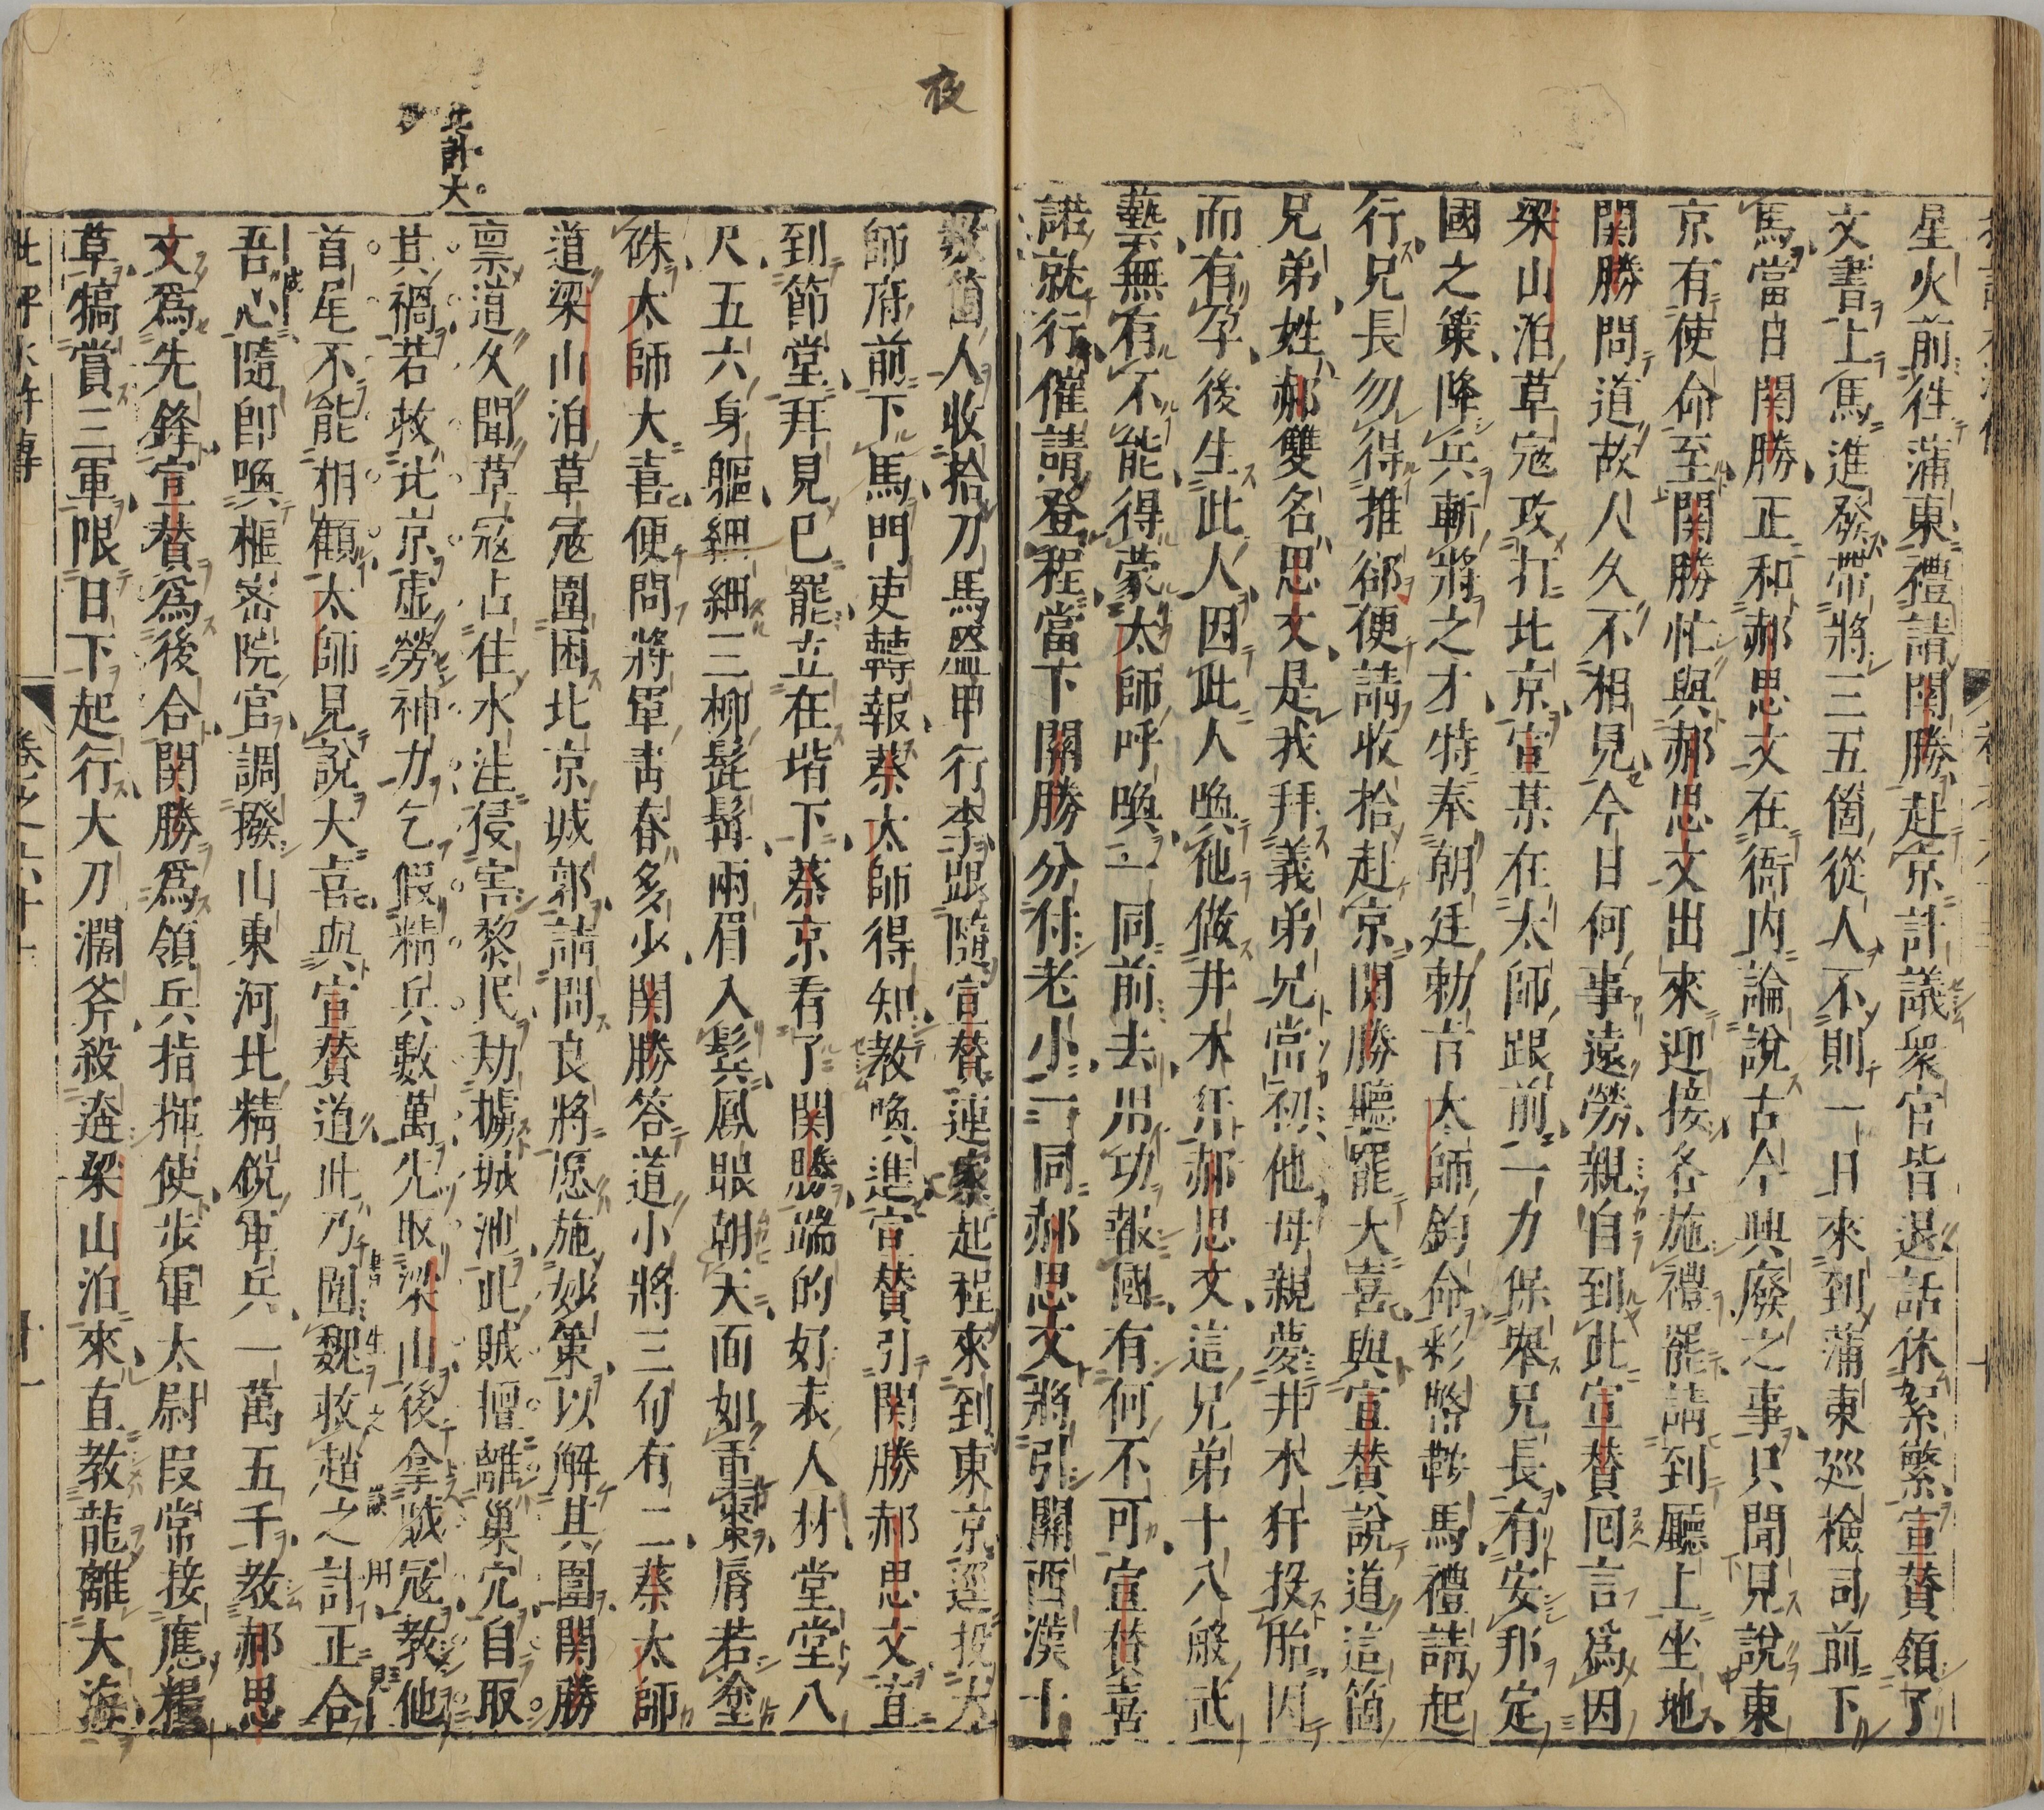 星火前徃蒲東禮請関勝赴京計議衆官皆退話休絮繁宣賛領了
文書上馬進發帶將三五箇從人不則一日來到蒲東巡檢司前下
馬當日関勝正和郝思文在衙内論說古今興廢之事只聞見說東
京有使命至関勝忙與郝思文出來迎接各施禮罷請到廳上坐地
関勝問道故人久不相見今日何事遠勞親自到此宣賛回言爲因
梁山泊草寇攻打北京宣某在太師跟前一力保舉兄長有安邦定
國之策降兵斬將之才特奉朝廷勅旨太師鈞命彩幣鞍馬禮請起
行兄長勿得推郤便請收拾赴京関勝聽罷大喜與宣賛說道這箇
兄弟姓郝雙名思文是我拜義弟兄當初他母親夢井木犴投胎因
而有孕後生此人因此人喚他做井木犴郝思文這兄弟十八般武
藝無有不能得蒙太師呼喚一同前去用功報國有何不可宣賛喜
諾就行催請登程當下關勝分付老小一同郝思文將引關西漢十
數箇人收拾刀馬盔甲行李跟隨宣賛連家起程來到東京逕投太
師府前下馬門吏轉報蔡太師得知教喚進宣賛引関勝郝思文直
到節堂拜見已罷立在堦下蔡京看了関勝端的好表人材堂堂八
尺五六身軀細細三柳髭髯兩眉入鬂鳳眼朝天面如重棗唇若塗
硃太師大喜便問將軍青春多少関勝答道小將三旬有二蔡太師
道梁山泊草寇圍困北京城郭請問良將愿施妙策以解其圍関勝
禀道久聞草寇占住水洼侵害黎民刼擄城池此賊擅離巢穴自取
其禍若救北京虚勞神力乞假精兵數萬先取梁山後拿賊冦教他
首尾不能相顧太師見說大喜與宣賛道此乃圍魏救趙之計正合
吾心隨卽喚樞密院官調撥山東河北精銳軍兵一萬五千教郝思
文爲先鋒宣賛爲後合関勝爲領兵指揮使步軍太尉段常接應糧
草犒賞三軍限日下起行大刀濶斧殺奔梁山泊來直教龍離大海
卷之六十
十一
夜
此計大